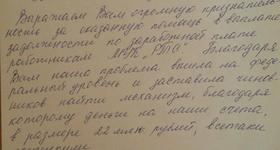 Выражаем Вам огромную признатель-
ность за оказанную помощь в выплате
задолженности по заработной плате
работникам "РТС". Благодаря
Вам наша проблема вышла на феде-
ральный уровень и заставила чинов-
ников найти механизм, благодаря
которому деньги на наши счета,
в размере 22 млн. рублей, всетаки